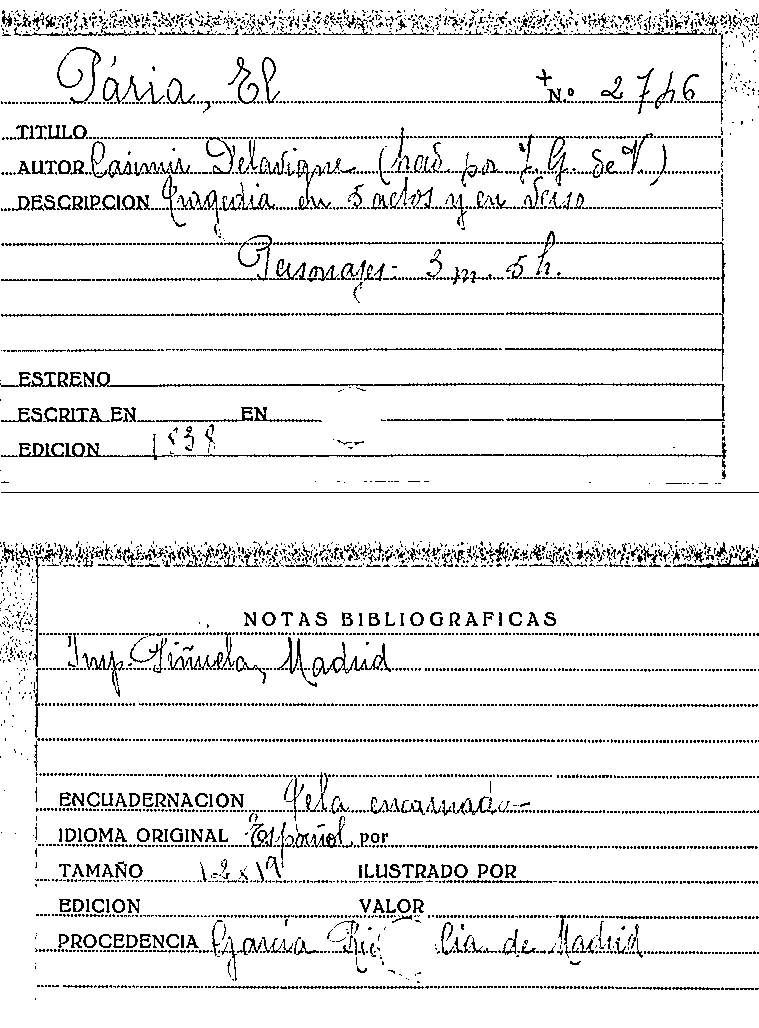 Pária, El
+ N.º 2746
TITULO
AUTOR Casimir Delavigne (trad por J. G. de V.)
DESCRIPCION Tragedia en 5 actos y en verso
Personajes- 3 m. 5 h.
ESTRENO
ESCRITA EN EN
EDICION 1838
NOTAS BIBLIOGRAFICAS
Imp. Piñuela, Madrid
ENCUADERNACION Tela encarnado
IDIOMA ORIGINAL Español por
TAMAÑO 12 x 19 ILUSTRADO POR
EDICION VALOR
PROCEDENCIA García Cia. de Madrid